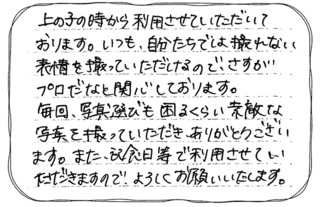 上の子の時から利用させていただいて
おります。いつも、自分たちでは撮れない
表情を撮っていただけるのでさすが
プロだなと関心しております。
毎回、写真選びも困るくらい素敵な
写真を撮っていただき、ありがとうござい
ます。また、記念日等で利用させてい
ただきますので よろしくお願いいたします。